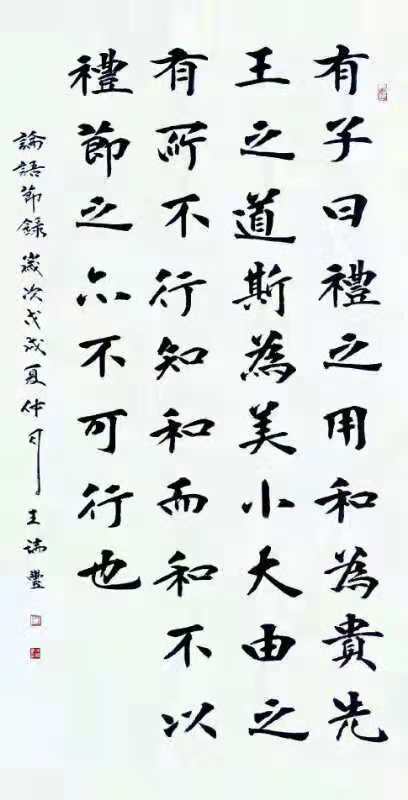 有子曰禮之用和為貴先
王之道斯為美小大由之
有所不行知和而和不以
禮節之亦不可行也
論語節錄 歲次戊戌夏仲月 王瑞豐